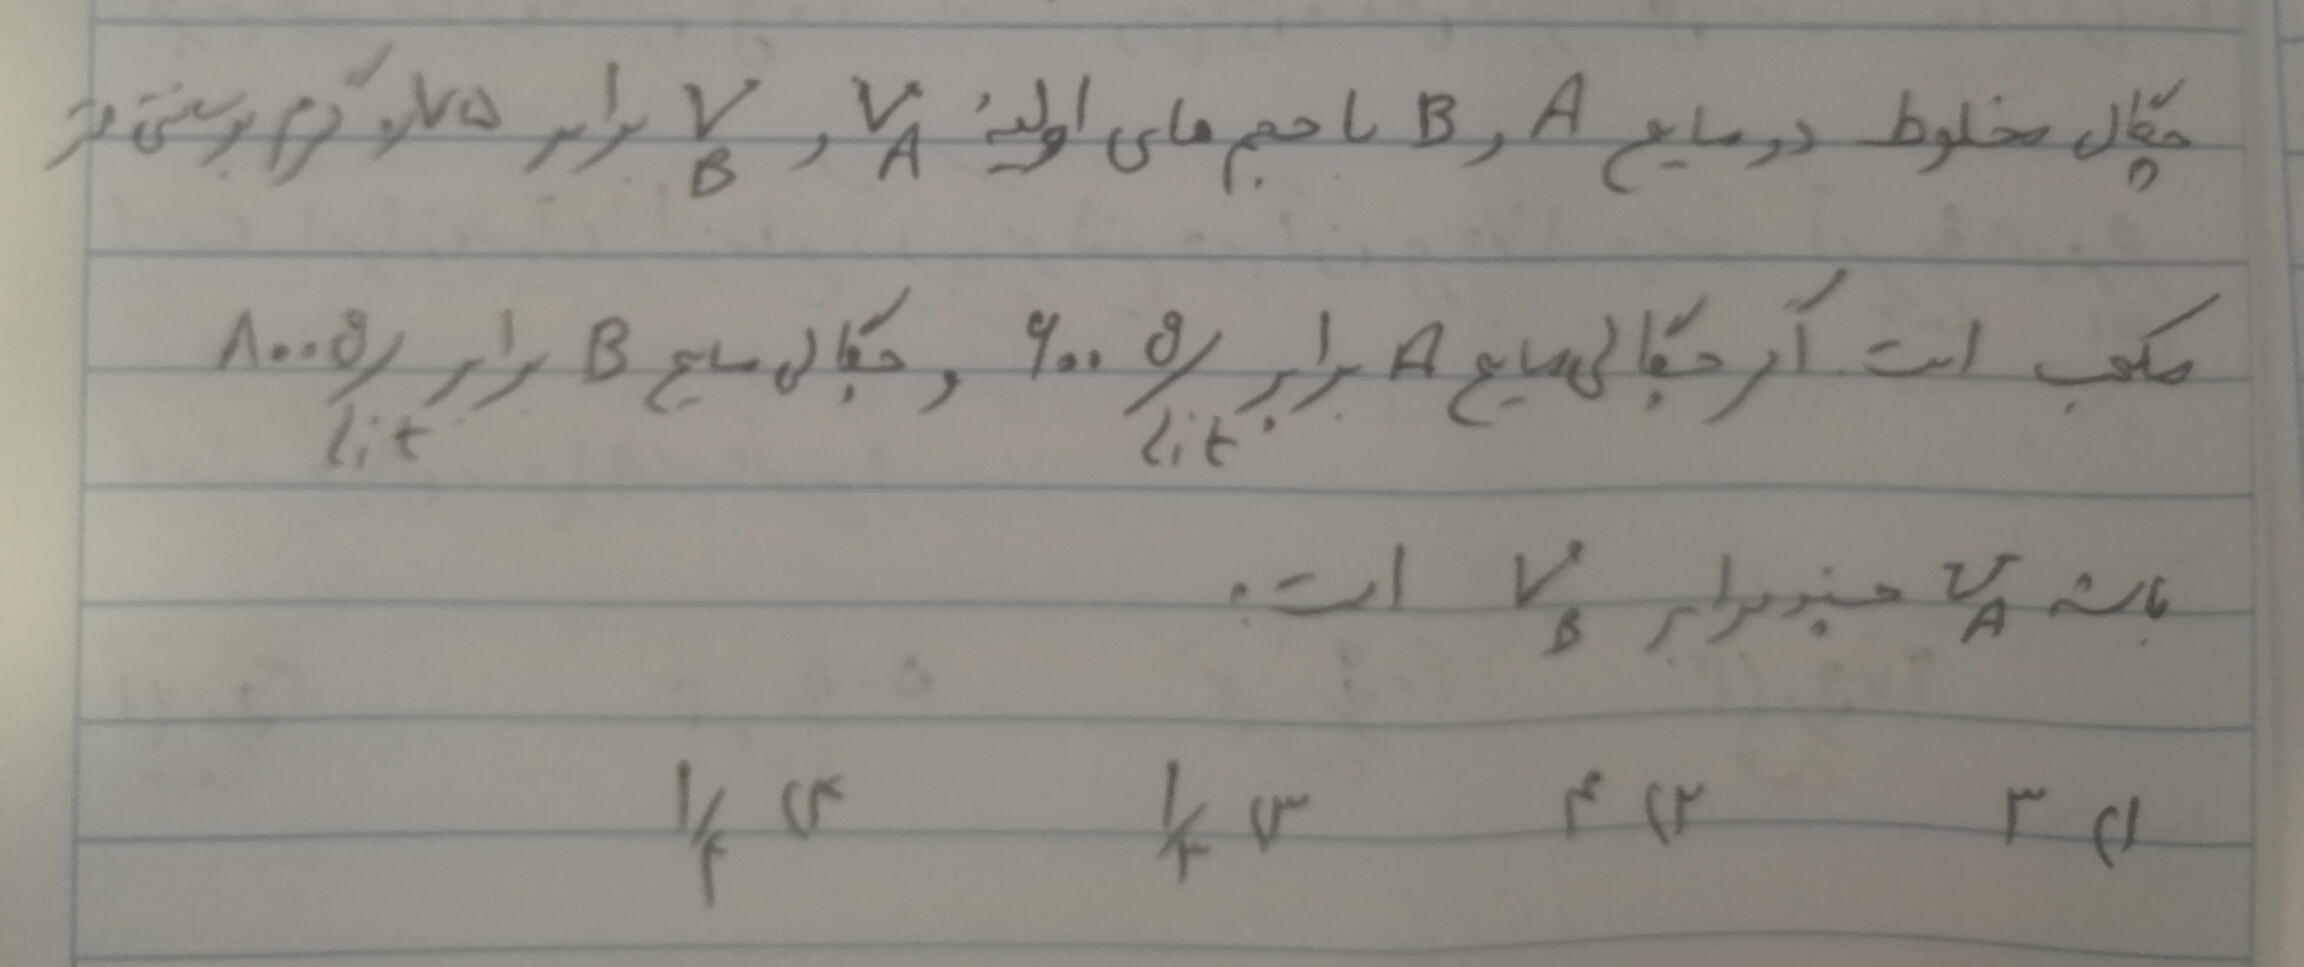 چگال مخلوط دو مایع A و B با حجم های اولیهٔ V_A و V_B برابر ۰/۷۵ گرم بر سانتی متر
مکعب است. اگر چگالی مایع A برابر ۶۰۰ g/lit و چگالی مایع B برابر ۸۰۰ g/lit
باشد V_A چند برابر V_B است:
۱) ۳ ۲) ۴ ۳) ۱/۳ ۴) ۱/۴